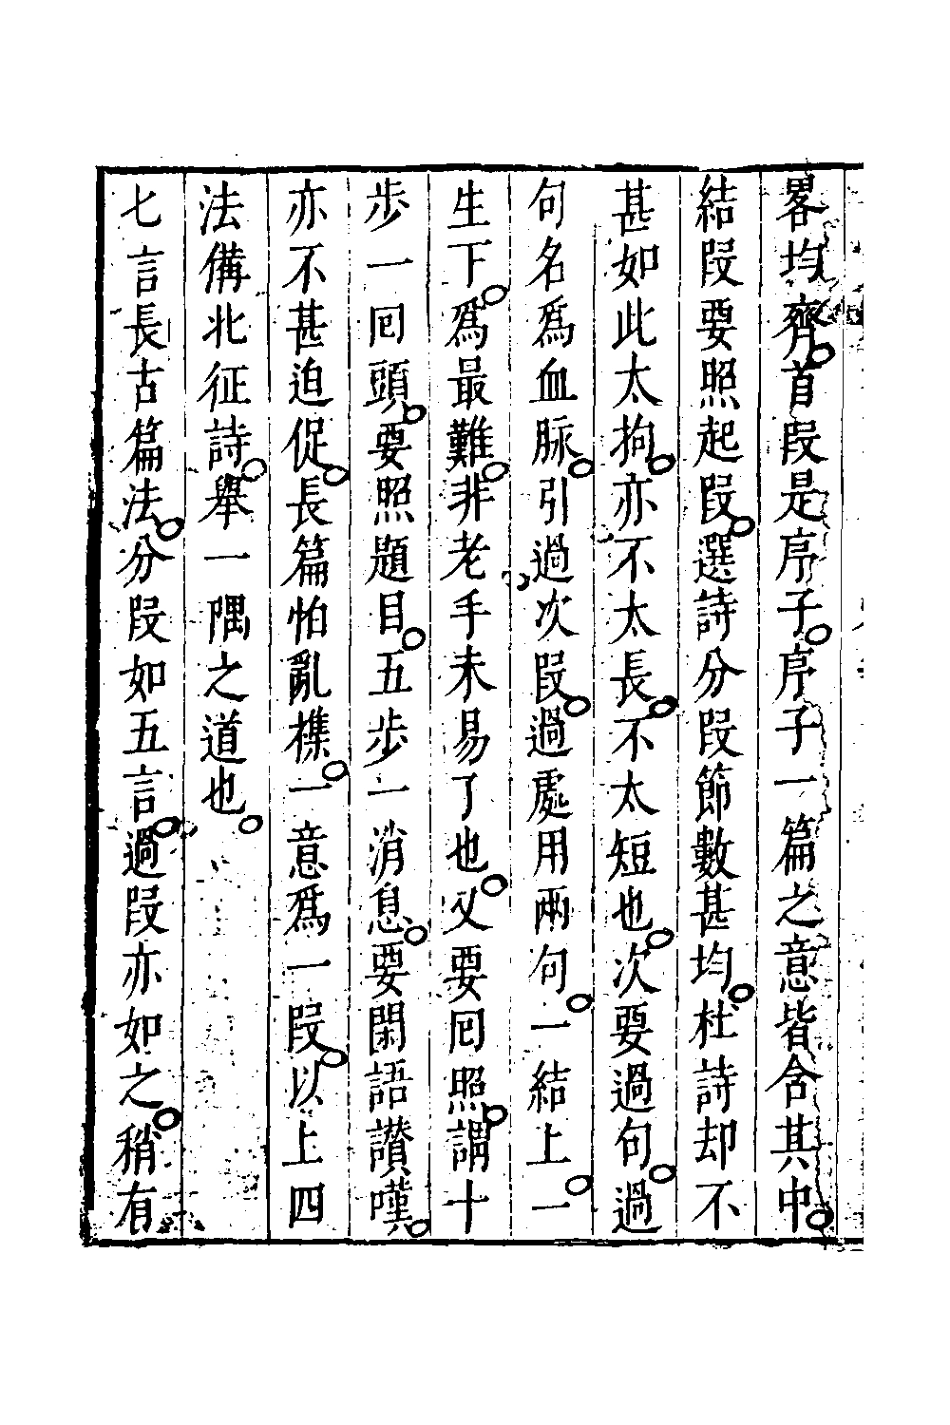 畧均齊首段是序子序子一篇之意皆含其中
結段要照起段選詩分段節數甚均杜詩却不
甚如此太拘亦不太長不太短也次要過句過
句名為血脉引過次段過處用兩句一結上一
生下為最難非老手未易了也又要囘照謂十
步一囘頭要照題目五步一消息要閑語讃嘆
亦不甚迫促長篇怕亂襍一意為一段以上四
法備北征詩舉一隅之道也
七言長古篇法分段如五言過段亦如之稍有